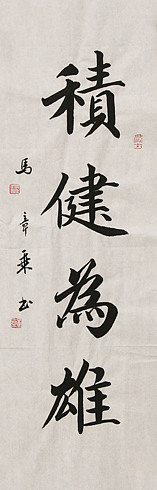 積健為雄
馬章乗书